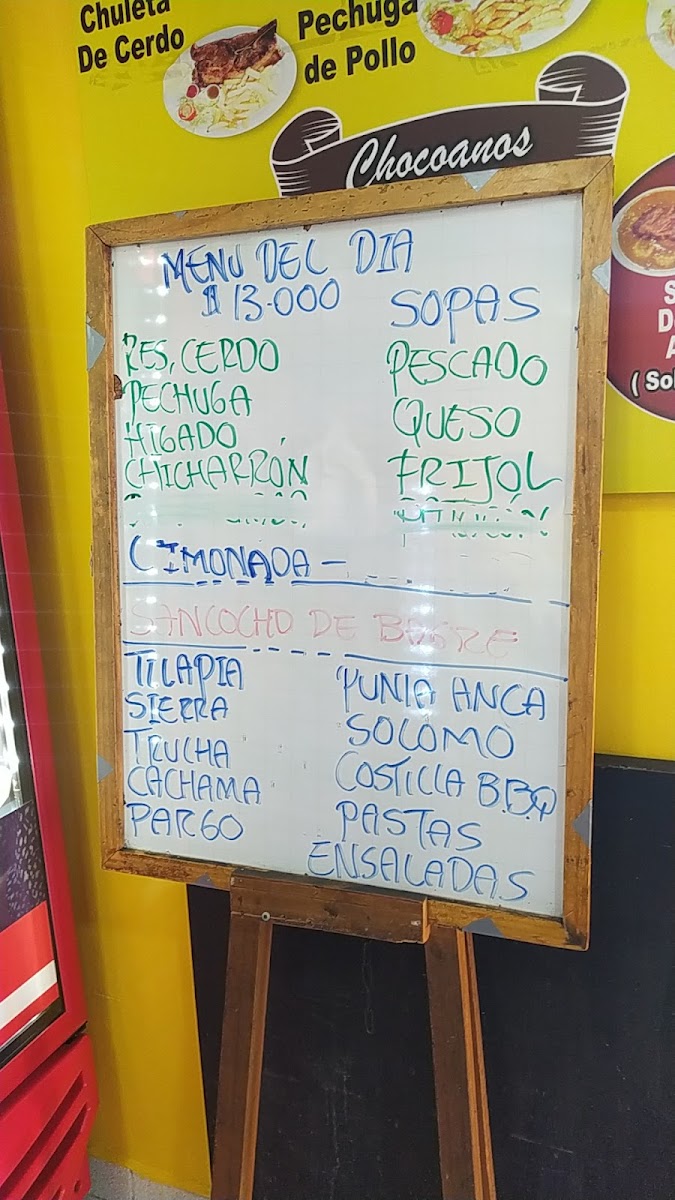 Chuleta
De Cerdo
Pechuga
de Pollo
Chocoanos
MENU DEL DIA
$ 13.000
RES, CERDO
PECHUGA
HIGADO
CHICHARRÓN
SOPAS
PESCADO
QUESO
FRIJOL
LIMONADA -
SANCOCHO DE BAGRE
TILAPIA
SIERRA
TRUCHA
CACHAMA
PARGO
PUNTA ANCA
SOLOMO
COSTILLA B.B.Q
PASTAS
ENSALADAS
S
D
A
( So